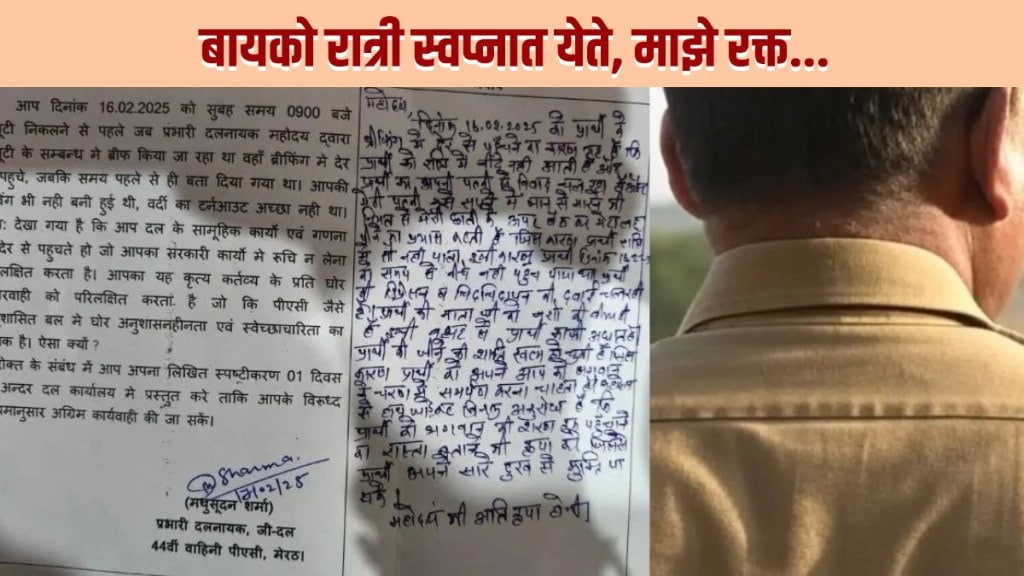 बायको रात्री स्वप्नात येते, माझे रक्त...
आप दिनांक 16.02.2025 को सुबह समय 0900 बजे
यूटी निकलने से पहले जब प्रभारी दलनायक महोदय द्वारा
यूटी के सम्बन्ध मे ब्रीफ किया जा रहा था वहाँ ब्रीफिंग मे देर
पहुचे, जबकि समय पहले से ही बता दिया गया था। आपकी
भी नही बनी हुई थी, वर्दी का टर्नआउट अच्छा नही था।
देखा गया है कि आप दल के सामूहिक कार्यो एवं गणना
देर से पहुचते हो जो आपका सरकारी कार्यो मे रुचि न लेना
लक्षित करता है। आपका यह कृत्य कर्तव्य के प्रति घोर
परवाही को परिलक्षित करता है जो कि पीएसी जैसे
शासित बल मे घोर अनुशासनहीनता एवं स्वेच्छाचारिता का
है। ऐसा क्यों ?
रोक्त के संबंध में आप अपना लिखित स्पष्टीकरण 01 दिवस
अन्दर दल कार्यालय मे प्रस्तुत करे ताकि आपके विरूध्द
यमानुसार अग्रिम कार्यवाही की जा सकें।
Sharma
(मधुसूदन शर्मा)
प्रभारी दलनायक, जी-दल
44वी वाहिनी पीएसी, मेरठ।
महोदय,
दिनांक 16.02.2025 को प्रार्थी के
ब्रीफिंग में देर से पहुंचने का कारण यह है कि
प्रार्थी को रात में नींद नही आती है
प्रार्थी का अपनी पत्नी से विवाद चल रहा है
मेरी छाती के ऊपर बैठ कर मेरा खून
का प्रयास करती है जिस कारण प्रार्थी
सो नही पाता, इसी कारण प्रार्थी दिनांक
को समय से नही पहुंच पाया था प्रार्थी
डिप्रेशन व चिड़चिड़ापन की दवाई
प्रार्थी की माता जी की नसों की बीमारी
प्रार्थी की जीने की इच्छा खत्म हो चुकी है
कारण प्रार्थी को अपने आप को भगवान
के चरणों में समर्पण करना चाहता
प्रार्थी को भगवान की शरण
का रास्ता बताने की कृपा करे जिससे
प्रार्थी अपने सारे दुखो से मुक्ति पा
सके
महोदय की अति कृपा होगी